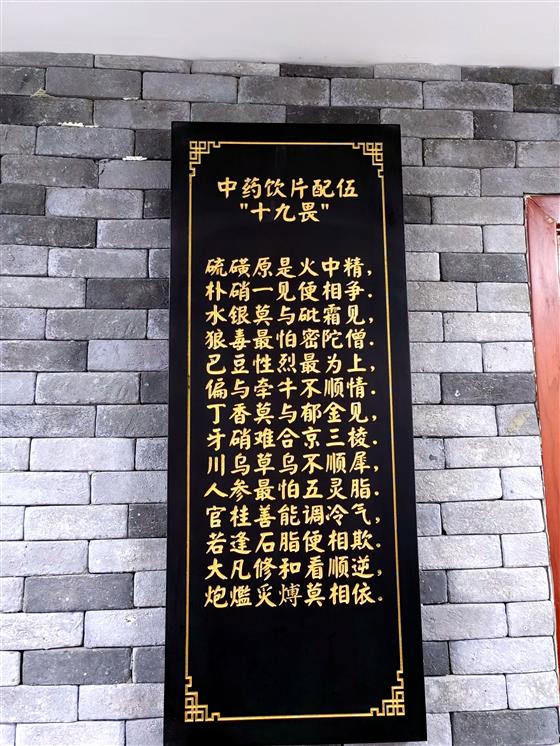 中药饮片配伍
"十九畏"
硫磺原是火中精,
朴硝一见便相争.
水银莫与砒霜见,
狼毒最怕密陀僧.
巴豆性烈最为上,
偏与牵牛不顺情.
丁香莫与郁金见,
牙硝难合京三棱.
川乌草乌不顺犀,
人参最怕五灵脂.
官桂善能调冷气,
若逢石脂便相欺.
大凡修和看顺逆,
炮爁炙煿莫相依.